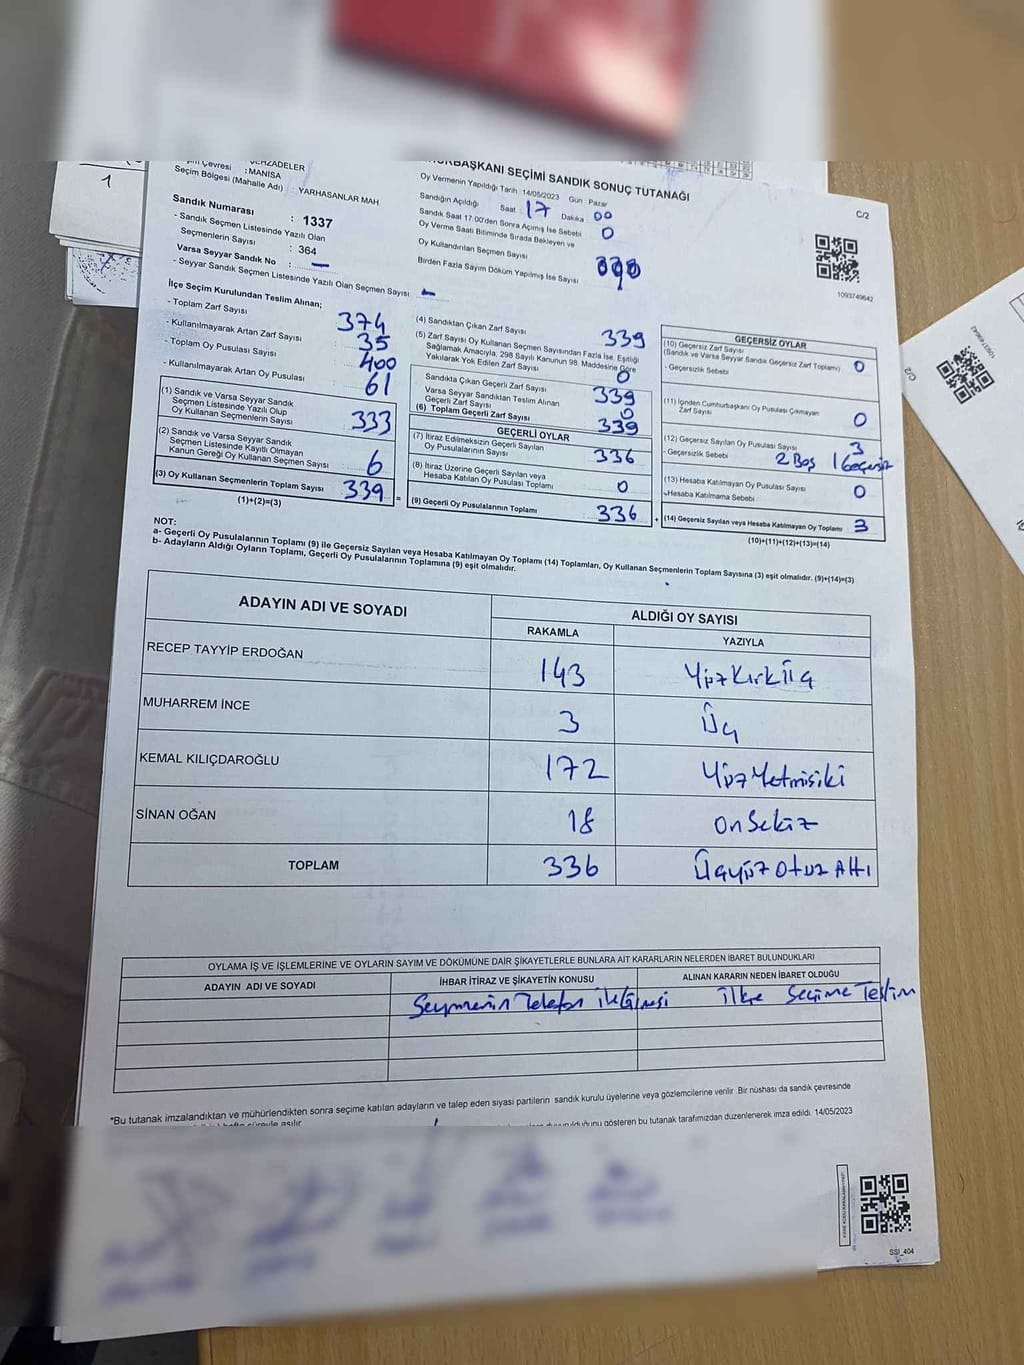 1
C/2
BAŞKANI SEÇİMİ SANDIK SONUÇ TUTANAĞI
Çevresi : MANİSA
Seçim Bölgesi (Mahalle Adı) : YARHASANLAR MAH
Sandık Numarası : 1337
- Sandık Seçmen Listesinde Yazılı Olan
Seçmenlerin Sayısı : 364
Varsa Seyyar Sandık No : -
- Seyyar Sandık Seçmen Listesinde Yazılı Olan Seçmen Sayısı : -
Oy Vermenin Yapıldığı Tarih 14/05/2023 Gün : Pazar
Sandığın Açıldığı Saat : 17 Dakika 00
Sandık Saat 17:00'den Sonra Açımış İse Sebebi
Oy Verme Saati Bitiminde Sırada Bekleyen ve 0
Oy Kullandırılan Seçmen Sayısı
Birden Fazla Sayım Döküm Yapılmış İse Sayısı
1093749642
İlçe Seçim Kurulundan Teslim Alınan;
- Toplam Zarf Sayısı 374
- Kullanılmayarak Artan Zarf Sayısı 35
- Toplam Oy Pusulası Sayısı 400
- Kullanılmayarak Artan Oy Pusulası 61
(1) Sandık ve Varsa Seyyar Sandık
Seçmen Listesinde Yazılı Olup
Oy Kullanan Seçmenlerin Sayısı 333
(2) Sandık ve Varsa Seyyar Sandık
Seçmen Listesinde Kayıtlı Olmayan
Kanun Gereği Oy Kullanan Seçmen Sayısı 6
(3) Oy Kullanan Seçmenlerin Toplam Sayısı 339 =
(1)+(2)=(3)
(4) Sandıktan Çıkan Zarf Sayısı 339
(5) Zarf Sayısı Oy Kullanan Seçmen Sayısından Fazla İse, Eşitliği
Sağlamak Amacıyla, 298 Sayılı Kanunun 98. Maddesine Göre
Yakılarak Yok Edilen Zarf Sayısı 0
Sandıkta Çıkan Geçerli Zarf Sayısı 339
Varsa Seyyar Sandıktan Teslim Alınan
Geçerli Zarf Sayısı 0
(6) Toplam Geçerli Zarf Sayısı 339
GEÇERLİ OYLAR
(7) İtiraz Edilmeksizin Geçerli Sayılan
Oy Pusulalarının Sayısı 336
(8) İtiraz Üzerine Geçerli Sayılan veya
Hesaba Katılan Oy Pusulası Toplamı 0
(9) Geçerli Oy Pusulalarının Toplamı 336 +
GEÇERSİZ OYLAR
(10) Geçersiz Zarf Sayısı
(Sandık ve Varsa Seyyar Sandık Geçersiz Zarf Toplamı) 0
- Geçersizlik Sebebi
(11) İçinden Cumhurbaşkanı Oy Pusulası Çıkmayan
Zarf Sayısı 0
(12) Geçersiz Sayılan Oy Pusulası Sayısı 3
- Geçersizlik Sebebi 2 Boş 1 Geçersiz
(13) Hesaba Katılmayan Oy Pusulası Sayısı 0
- Hesaba Katılmama Sebebi
(14) Geçersiz Sayılan veya Hesaba Katılmayan Oy Toplamı 3
(10)+(11)+(12)+(13)=(14)
NOT:
a- Geçerli Oy Pusulalarının Toplamı (9) ile Geçersiz Sayılan veya Hesaba Katılmayan Oy Toplamı (14) Toplamları, Oy Kullanan Seçmenlerin Toplam Sayısına (3) eşit olmalıdır. (9)+(14)=(3)
b- Adayların Aldığı Oyların Toplamı, Geçerli Oy Pusulalarının Toplamına (9) eşit olmalıdır.
ADAYIN ADI VE SOYADI ALDIĞI OY SAYISI
RAKAMLA YAZIYLA
RECEP TAYYİP ERDOĞAN 143 Yüz Kırk Üç
MUHARREM İNCE 3 Üç
KEMAL KILIÇDAROĞLU 172 Yüz Yetmişiki
SİNAN OĞAN 18 On Sekiz
TOPLAM 336 Üçyüz Otuz Altı
OYLAMA İŞ VE İŞLEMLERİNE VE OYLARIN SAYIM VE DÖKÜMÜNE DAİR ŞİKAYETLERLE BUNLARA AİT KARARLARIN NELERDEN İBARET BULUNDUKLARI
ADAYIN ADI VE SOYADI İHBAR İTİRAZ VE ŞİKAYETİN KONUSU ALINAN KARARIN NEDEN İBARET OLDUĞU
Seçmenin Telefon İlçe Seçime Teslim
*Bu tutanak imzalandıktan ve mühürlendikten sonra seçime katılan adayların ve talep eden siyasi partilerin sandık kurulu üyelerine veya gözlemcilerine verilir. Bir nüshası da sandık çevresinde
gösteren bu tutanak tarafımızdan düzenlenerek imza edildi. 14/05/2023
SSI_404